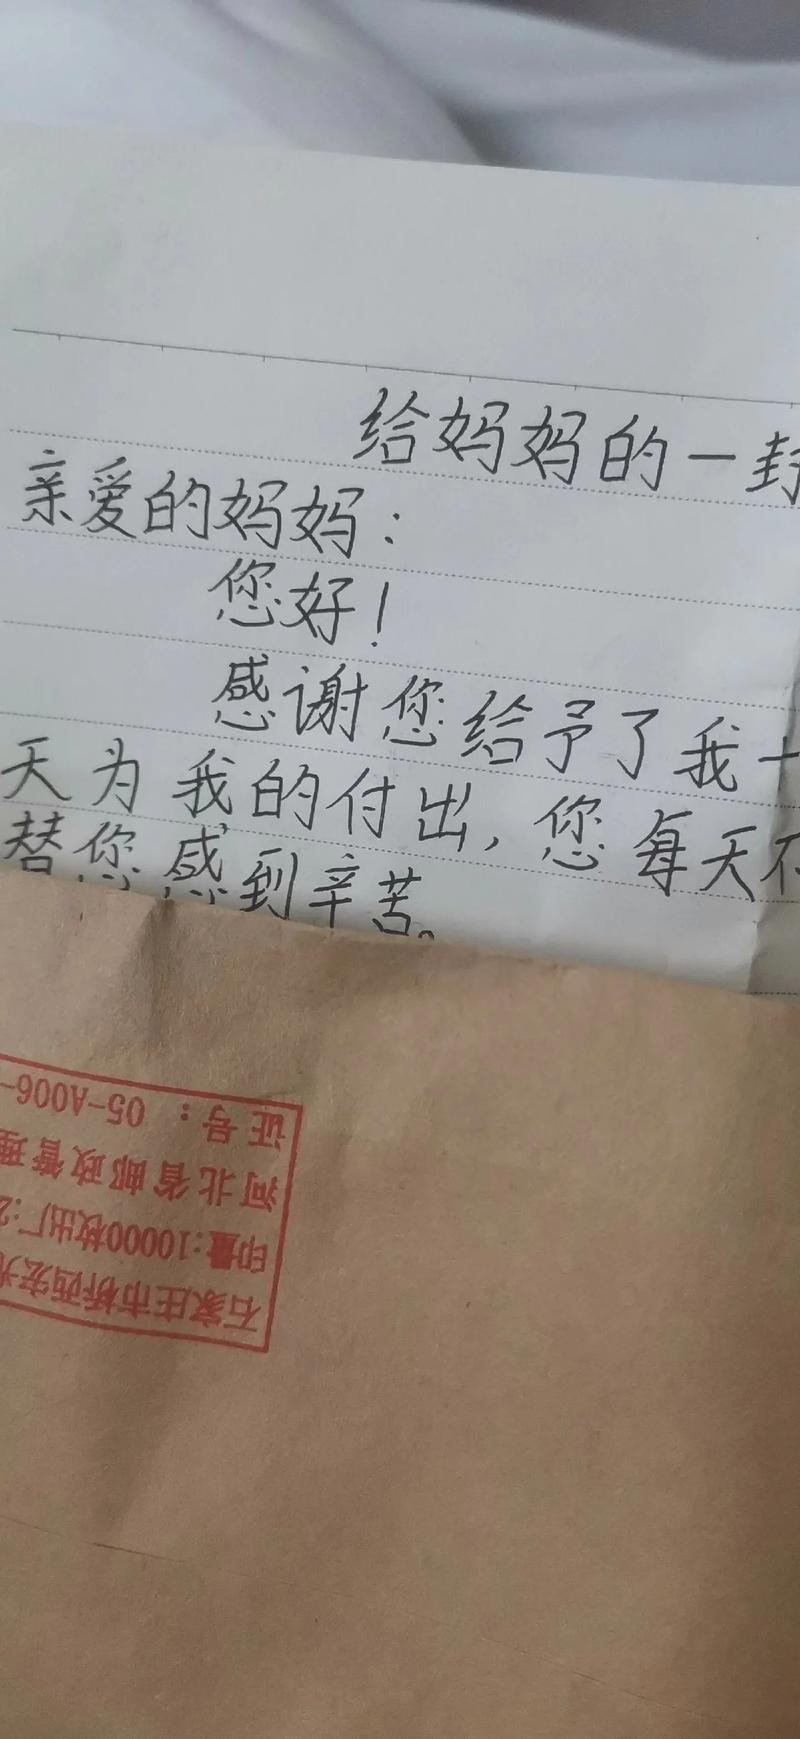 给妈妈的一封
亲爱的妈妈：
您好！
感谢您给予了我
天为我的付出，您每天不
替您感到辛苦。
证号：05-A006-
河北省邮政管理
印量:10000枚出厂:2
石家庄市桥西宏光